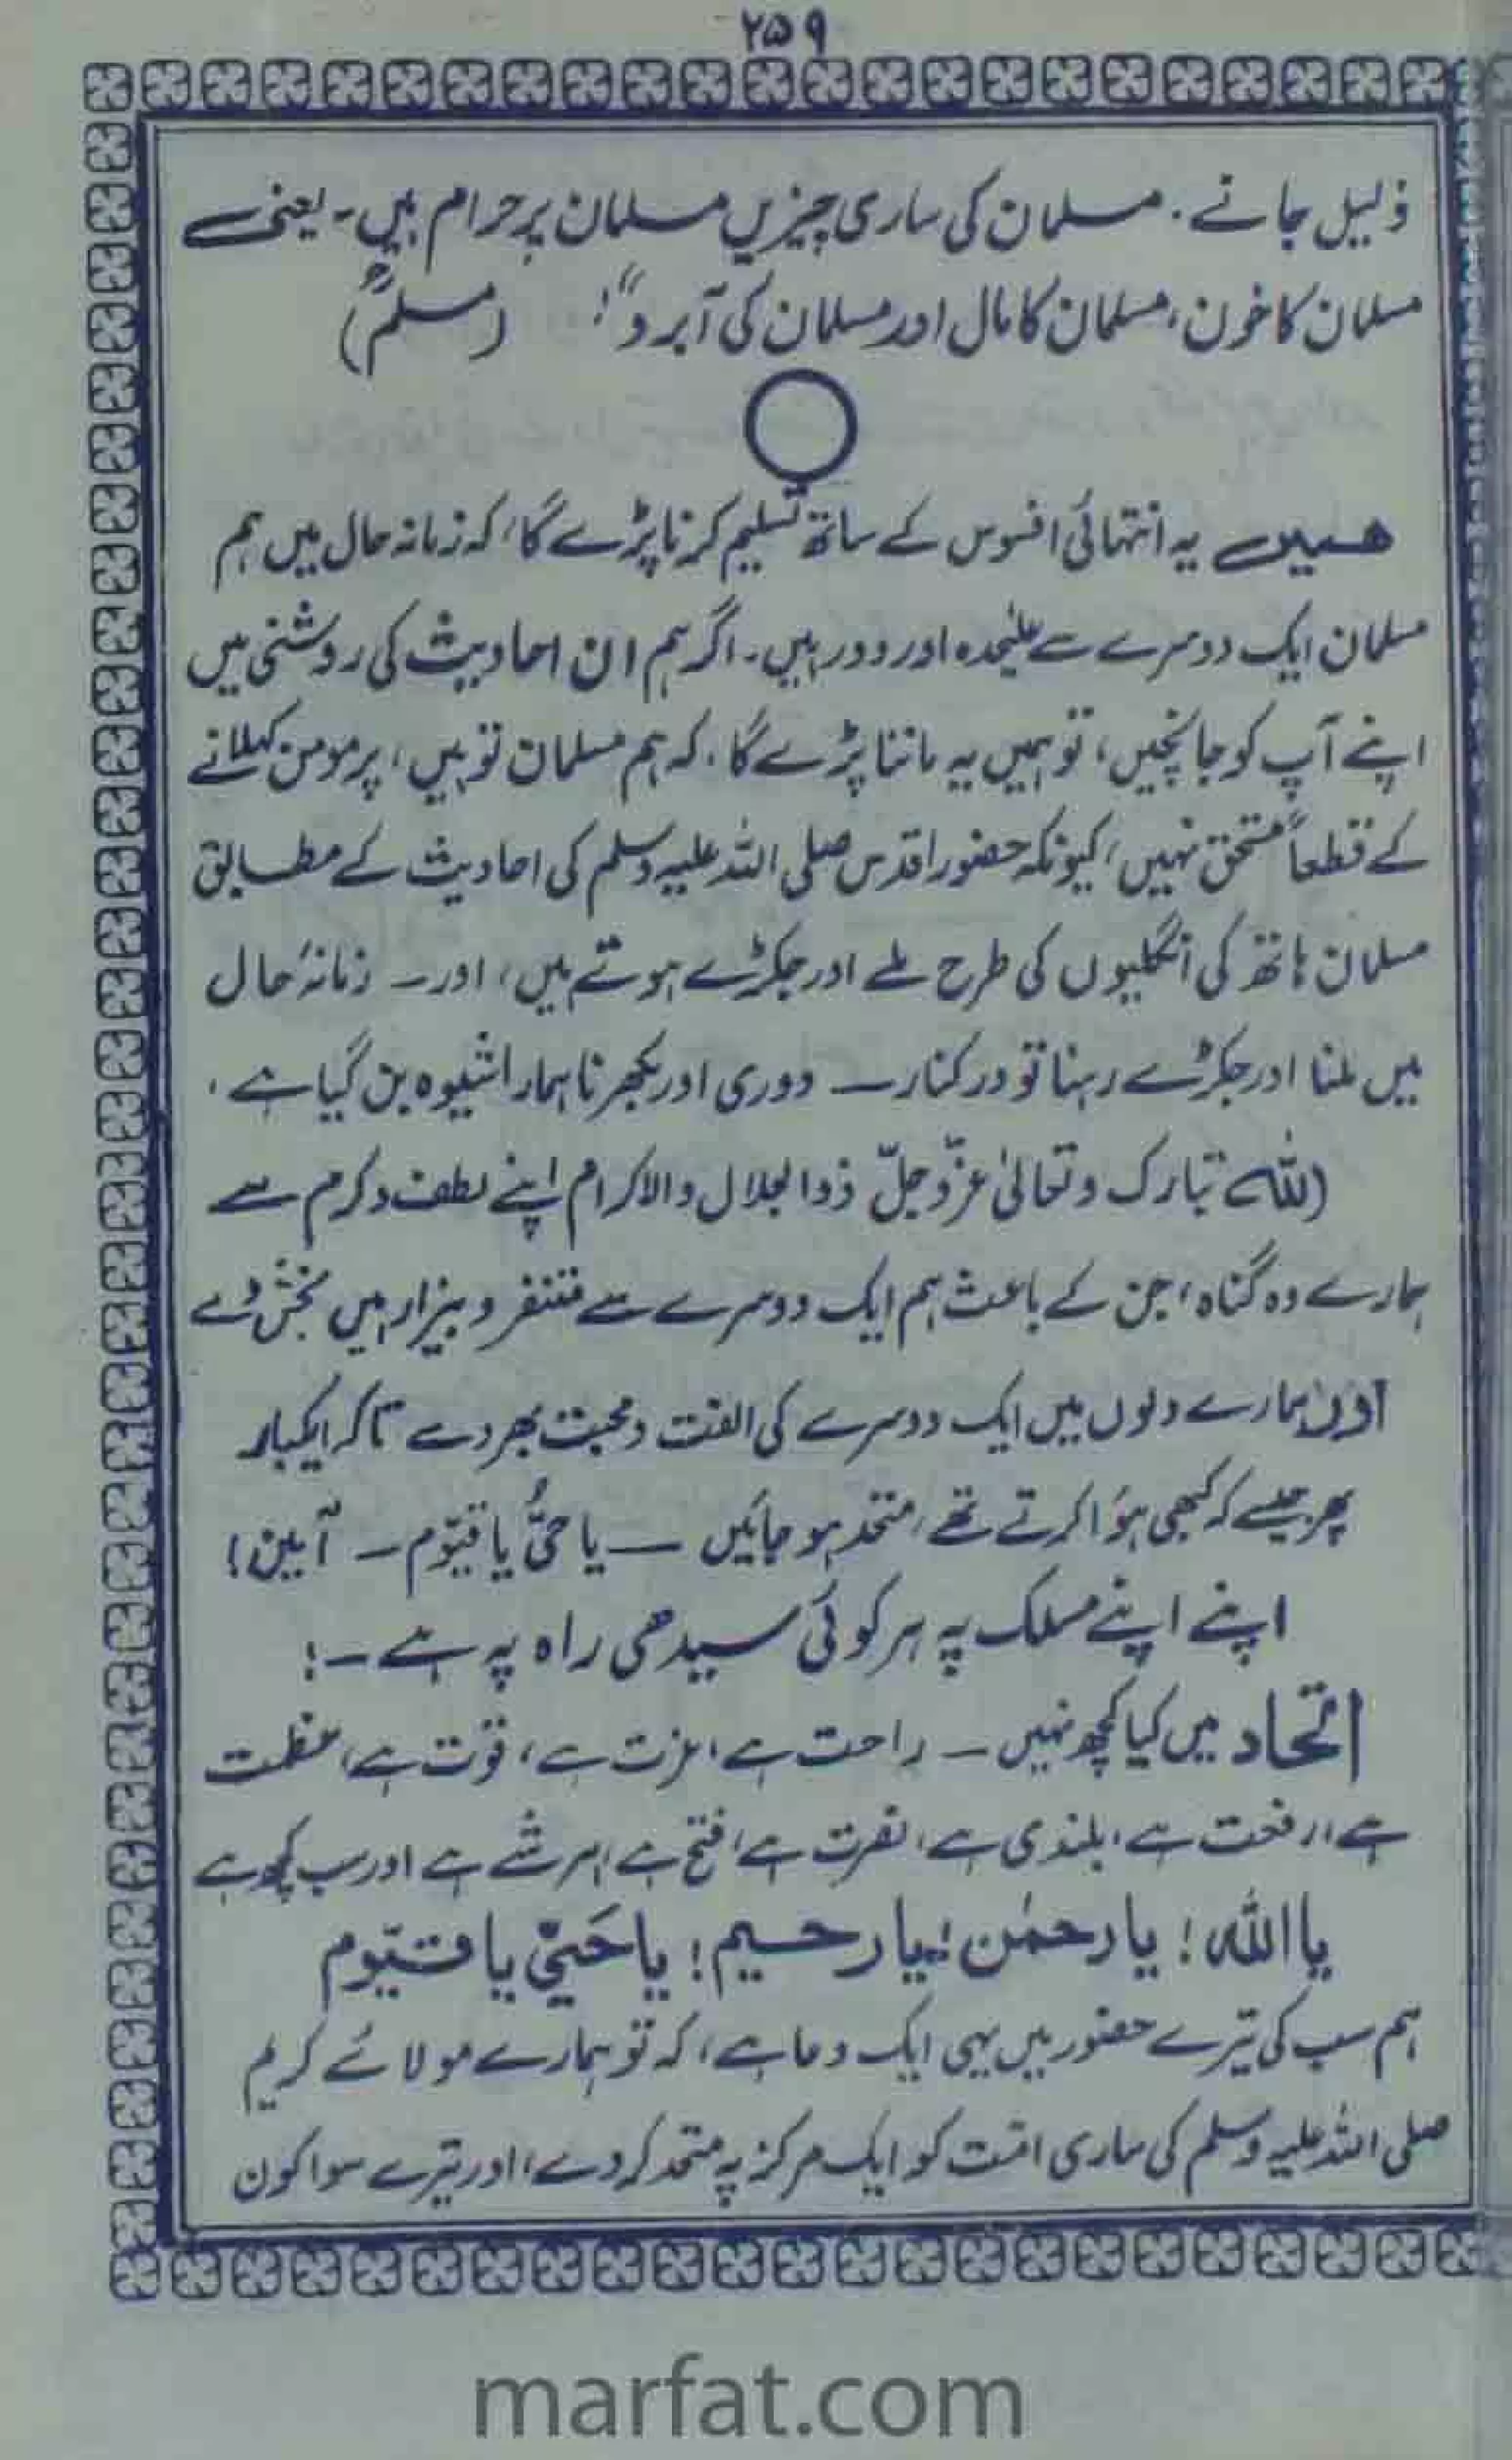 ۲۵۹
ذلیل جانے۔ مسلمان کی ساری چیزیں مسلمان پر حرام ہیں۔ یعنی
مسلمان کا خون، مسلمان کا مال اور مسلمان کی آبرو"! (مسلمؒ)
ہمیں یہ انتہائی افسوس کے ساتھ تسلیم کرنا پڑے گا، کہ زمانہ حال میں ہم
مسلمان ایک دوسرے سے علیٰحدہ اور دور ہیں۔ اگر ہم ان احادیث کی روشنی میں
اپنے آپ کو جانچیں، تو ہمیں یہ ماننا پڑے گا، کہ ہم مسلمان تو ہیں، پر مومن کہلانے
کے قطعاً مستحق نہیں، کیونکہ حضور اقدس صلی اللہ علیہ وسلم کی احادیث کے مطابق
مسلمان ہاتھ کی انگلیوں کی طرح ملے اور جکڑے ہوتے ہیں، اور ــ زمانۂ حال
میں ملنا اور جکڑے رہنا تو درکنار ــ دوری اور بکھرنا ہمارا شیوہ بن گیا ہے۔
اللہ تبارک و تعالیٰ عزّ و جلّ ذوالجلال والاکرام اپنے لطف و کرم سے
ہمارے وہ گناہ، جن کے باعث ہم ایک دوسرے سے متنفر و بیزار ہیں بخش دے
اور ہمارے دلوں میں ایک دوسرے کی الفت و محبت بھر دے تاکہ ایکبار
پھر جیسے کہ کبھی ہؤا کرتے تھے، متحد ہو جائیں ــ یا حیُّ یا قیّوم ــ آمین!
اپنے اپنے مسلک پہ ہر کوئی سیدھی راہ پہ ہے ــ!
اتحاد میں کیا کچھ نہیں ــ راحت ہے، عزت ہے، قوّت ہے، عظمت
ہے، رفعت ہے، بلندی ہے، نصرت ہے، فتح ہے، ہر شے ہے اور سب کچھ ہے
یا اللہ! یا رحمٰن! یا رحیم! یا حَیّ یا قیّوم
ہم سب کی تیرے حضور میں یہی ایک دعا ہے، کہ تو ہمارے مولائے کریم
صلی اللہ علیہ وسلم کی ساری امّت کو ایک مرکز پہ متحد کر دے، اور تیرے سوا کون
marfat.com